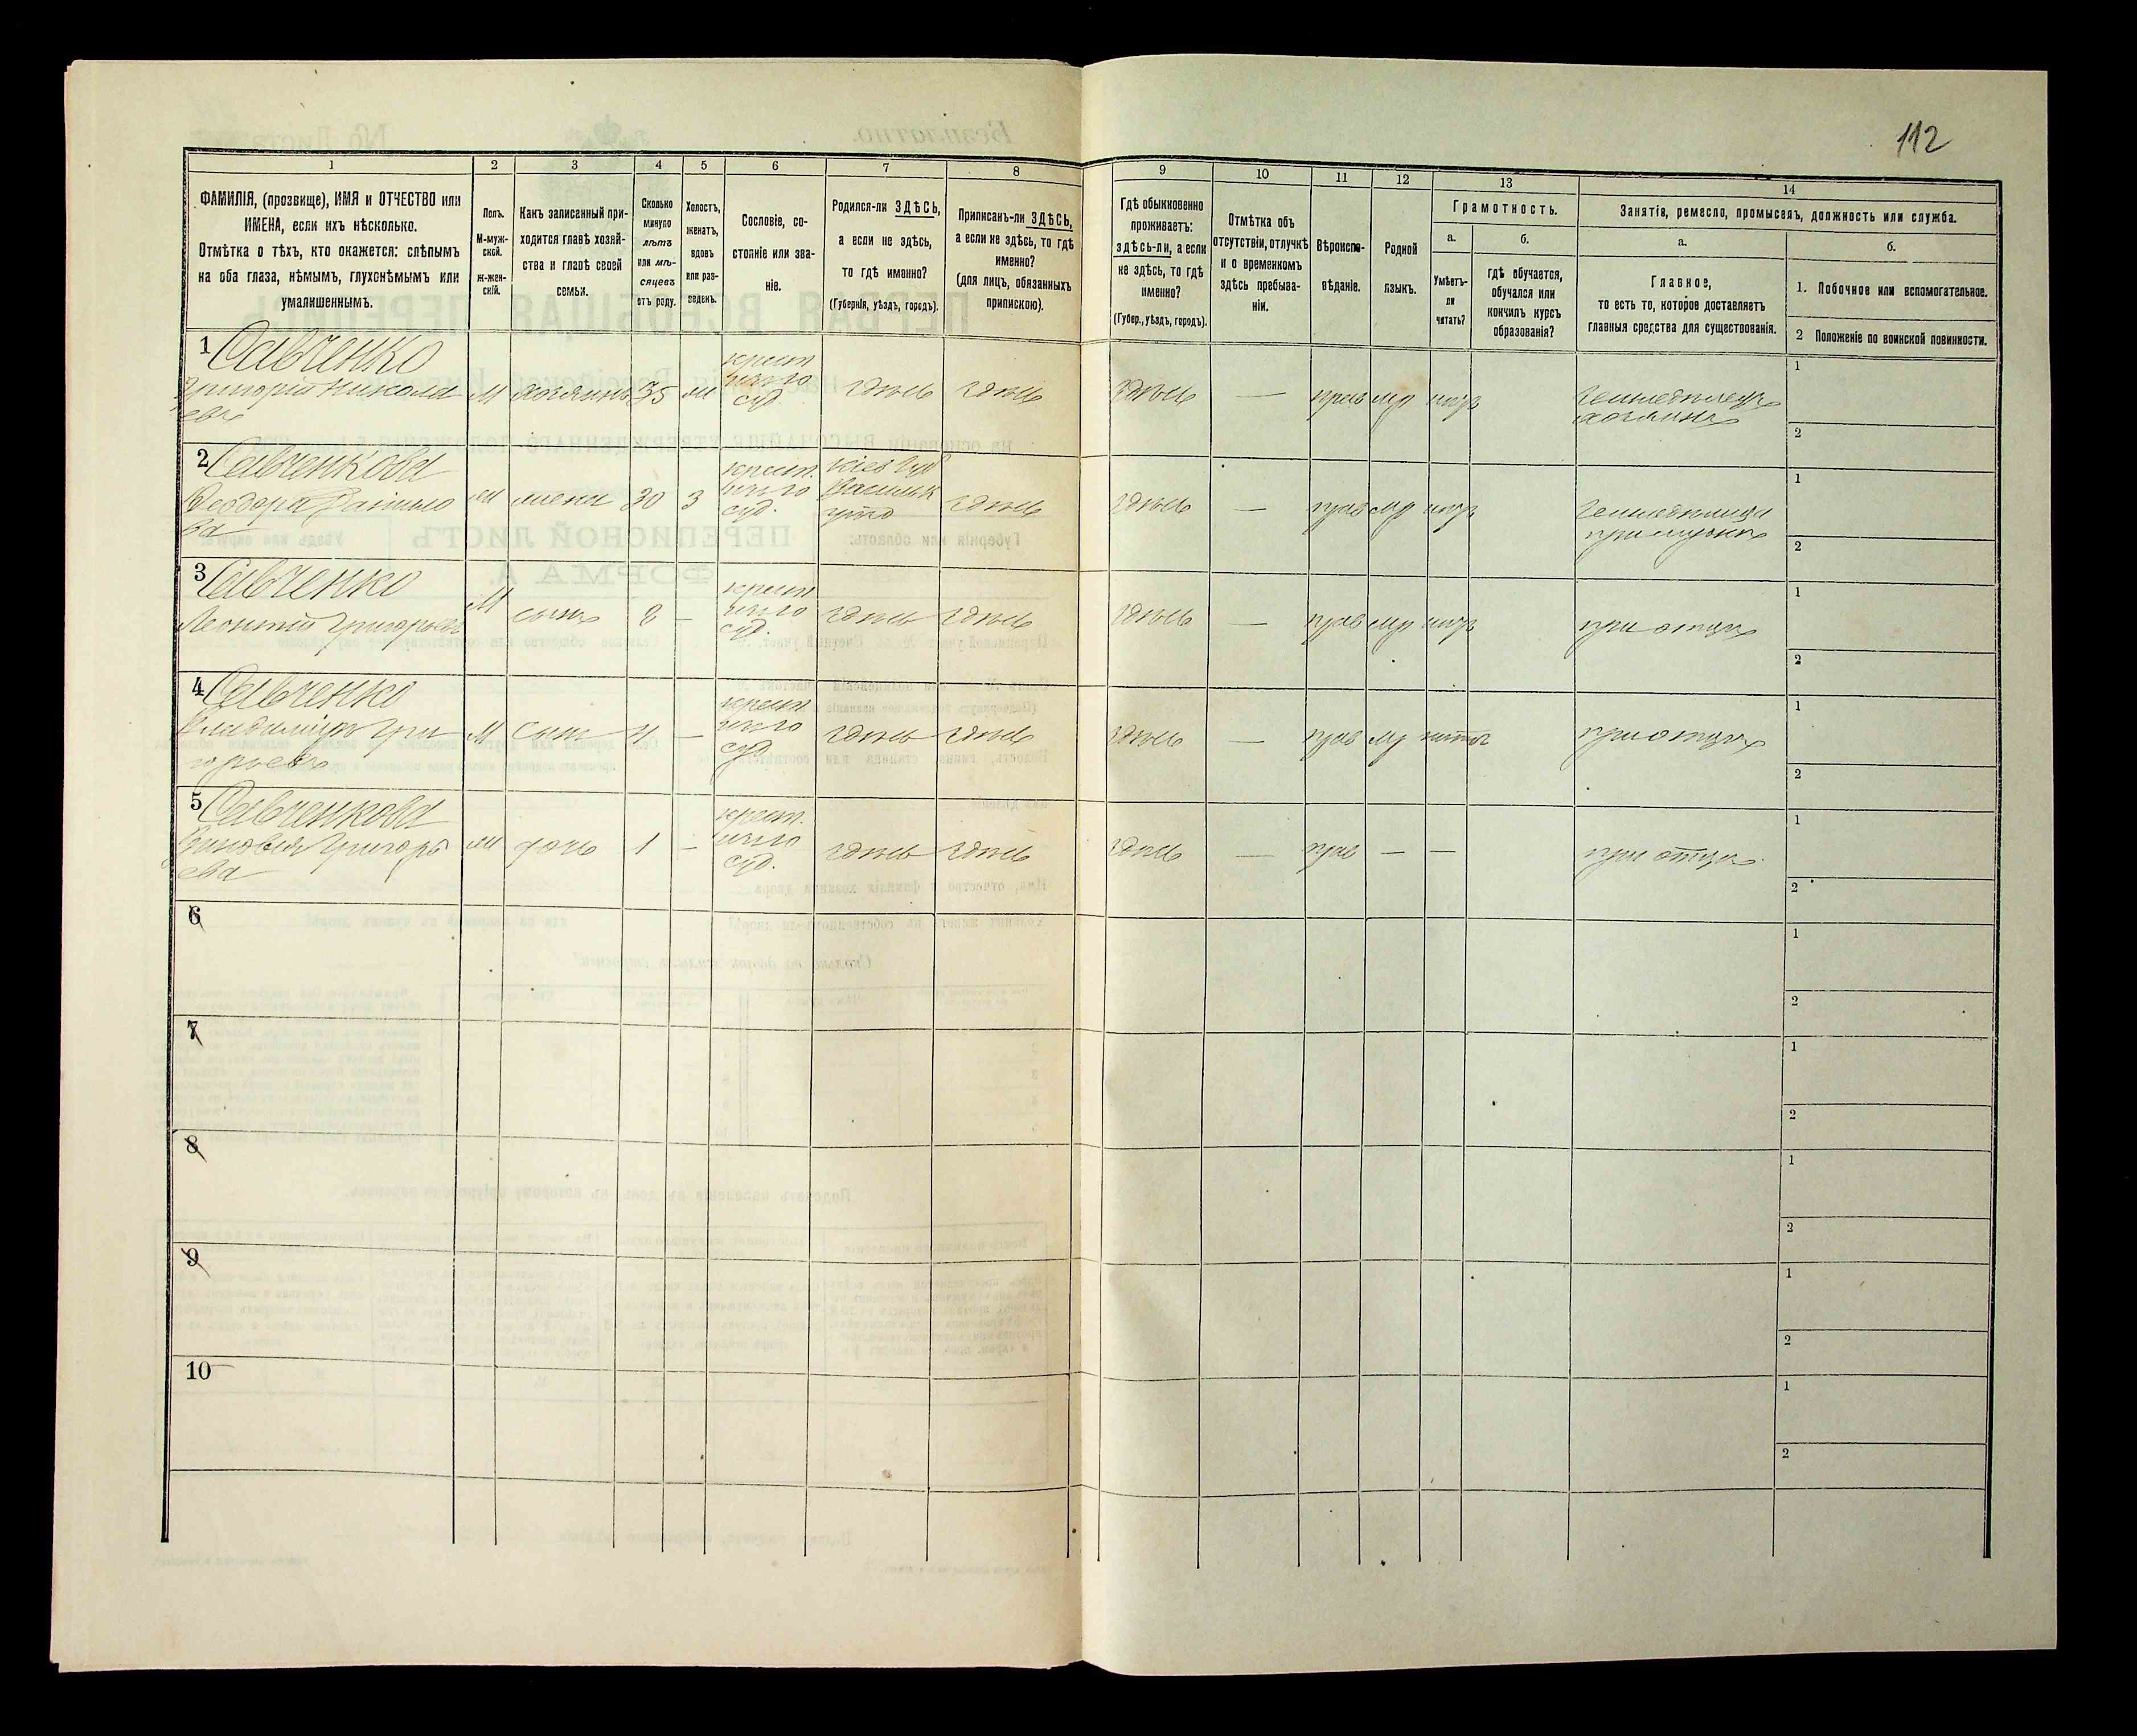 112
1 2 3 4 5 6 7 8 9 10 11 12 13 14
ФАМИЛІЯ, (прозвище), ИМЯ и ОТЧЕСТВО или
ИМЕНА, если ихъ нѣсколько.
Отмѣтка о тѣхъ, кто окажется: слѣпымъ
на оба глаза, нѣмымъ, глухонѣмымъ или
умалишеннымъ.
Полъ.
М-муж-
ской.
ж-жен-
скій.
Какъ записанный при-
ходится главѣ хозяй-
ства и главѣ своей
семьи.
Сколько
минуло
лѣтъ
или мѣ-
сяцевъ
отъ роду.
Холостъ,
женатъ,
вдовъ
или раз-
веденъ.
Сословіе, со-
стояніе или зва-
ніе.
Родился-ли ЗДѢСЬ,
а если не здѣсь,
то гдѣ именно?
(Губернія, уѣздъ, городъ).
Приписанъ-ли ЗДѢСЬ,
а если не здѣсь, то гдѣ
именно?
(для лицъ, обязанныхъ
припискою).
Гдѣ обыкновенно
проживаетъ:
здѣсь-ли, а если
не здѣсь, то гдѣ
именно?
(Губер., уѣздъ, городъ).
Отмѣтка объ
отсутствіи, отлучкѣ
и о временномъ
здѣсь пребыва-
ніи.
Вѣроиспо-
вѣданіе.
Родной
языкъ.
Грамотность.
а.
Умѣетъ-
ли
читать?
б.
гдѣ обучается,
обучался или
кончилъ курсъ
образованія?
Занятія, ремесло, промыселъ, должность или служба.
а.
Главное,
то есть то, которое доставляетъ
главныя средства для существованія.
б.
1. Побочное или вспомогательное.
2 Положеніе по воинской повинности.
1 Савченко
Григорій Никола
евъ
М хозяинъ 35 ж
крест.
суд.
здѣсь здѣсь здѣсь — прав мр
земледѣлецъ
хозяинъ
1
2
2 Савченкова
Ѳеодора Данило
ва
ж жена 30 з
крест.
суд.
Кіев губ
Васильк
здѣсь здѣсь — прав мр
земледѣлица
при мужѣ
1
2
3 Савченко
Леонтій Григорьевъ
М сынъ 8 —
крест.
суд.
здѣсь здѣсь здѣсь — прав мр
при отцѣ
1
2
4 Савченко
Владиміръ Гри
горьевъ
М сынъ 4 —
крест.
суд.
здѣсь здѣсь здѣсь — прав мр
при отцѣ
1
2
5 Савченкова
Зиновія Григорь
ева
ж дочь 1 —
крест.
суд.
здѣсь здѣсь здѣсь — прав — —
при отцѣ
1
2
6
1
2
7
1
2
8
1
2
9
1
2
10
1
2